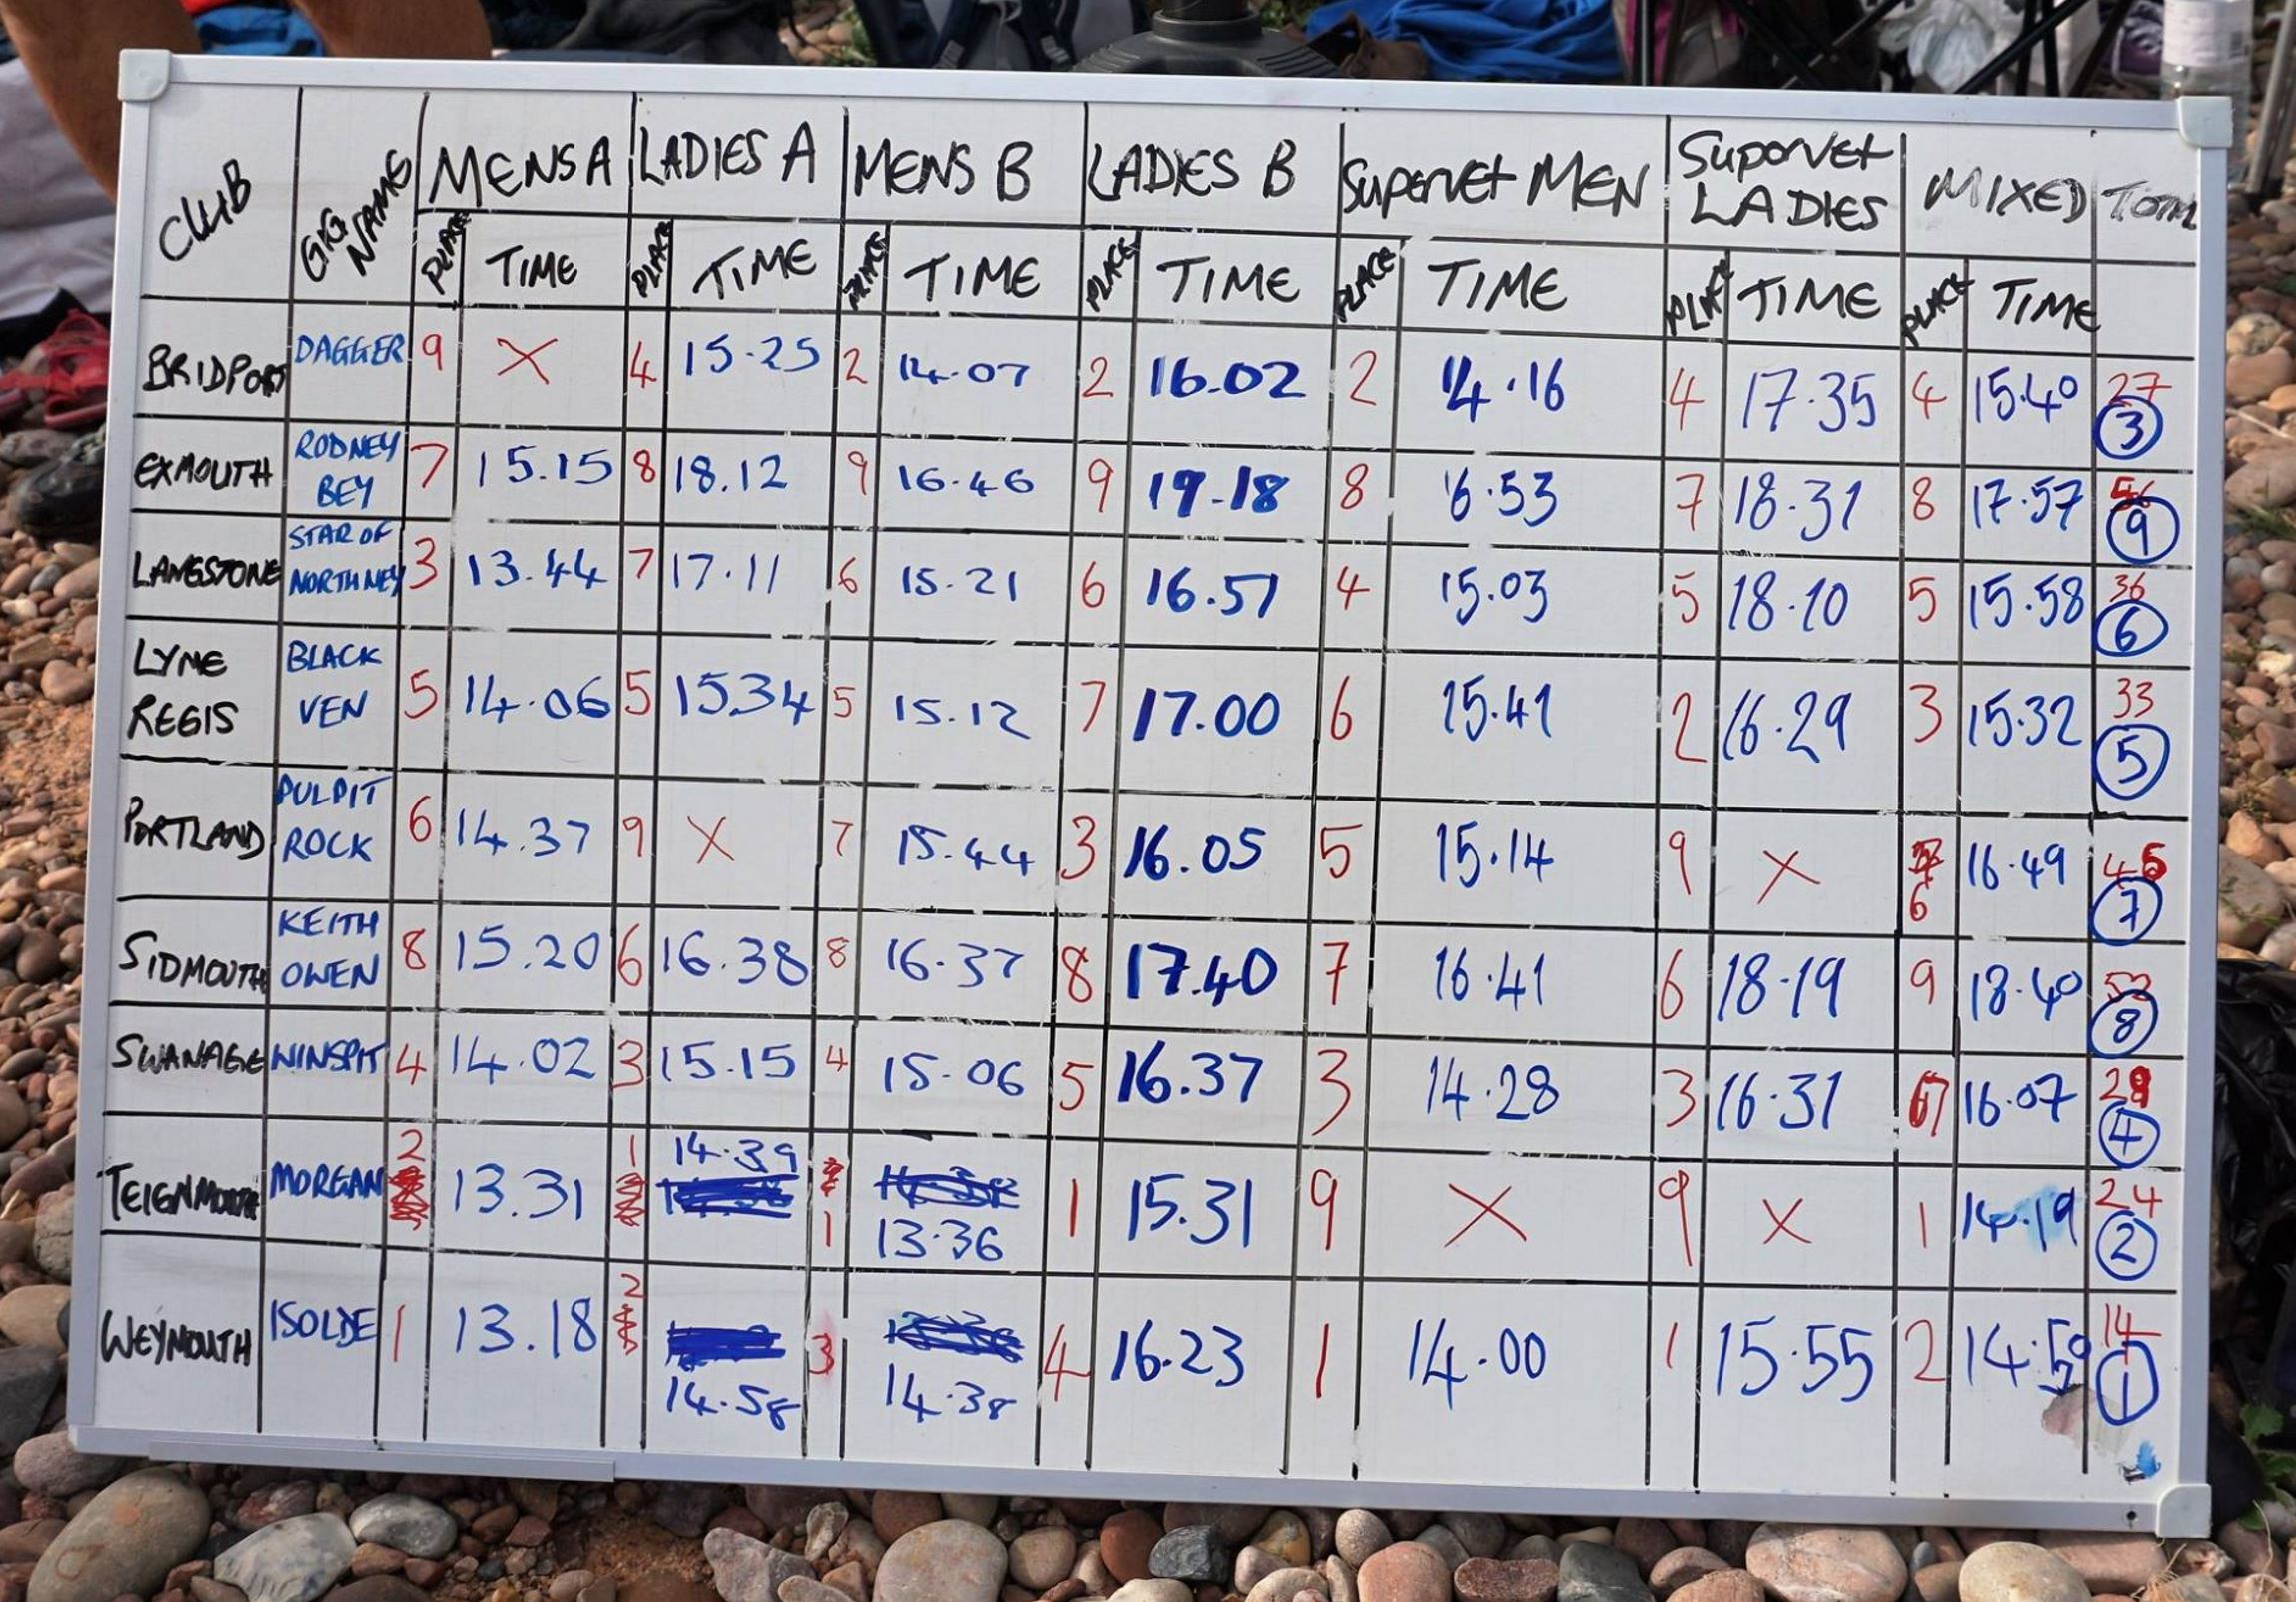 CLUB GIG NAME MENS A LADIES A MENS B LADIES B Supervet MEN Supervet LADIES MIXED TOTAL
PLACE TIME PLACE TIME PLACE TIME PLACE TIME PLACE TIME PLACE TIME PLACE TIME
BRIDPORT DAGGER 9 X 4 15.25 2 14.07 2 16.02 2 14.16 4 17.35 4 15.40 27 3
EXMOUTH RODNEY BEY 7 15.15 8 18.12 9 16.46 9 19.18 8 16.53 7 18.31 8 17.57 56 9
LANGSTONE STAR OF NORTHNEY 3 13.44 7 17.11 6 15.21 6 16.51 4 15.03 5 18.10 5 15.58 36 6
LYME REGIS BLACK VEN 5 14.06 5 15.34 5 15.12 7 17.00 6 15.41 2 16.29 3 15.32 33 5
PORTLAND PULPIT ROCK 6 14.37 9 X 7 15.44 3 16.05 5 15.14 9 X 6 16.49 45 7
SIDMOUTH KEITH OWEN 8 15.20 6 16.38 8 16.37 8 17.40 7 16.41 6 18.19 9 18.40 52 8
SWANAGE WINSPIT 4 14.02 3 15.15 4 15.06 5 16.37 3 14.28 3 16.31 16.07 4
TEIGNMOUTH MORGAN 2 13.31 1 14.39 1 13.36 1 15.31 9 X 9 X 1 14.19 24 2
WEYMOUTH ISOLDE 1 13.18 2 14.58 3 14.38 4 16.23 1 14.00 1 15.55 2 14.50 14 1